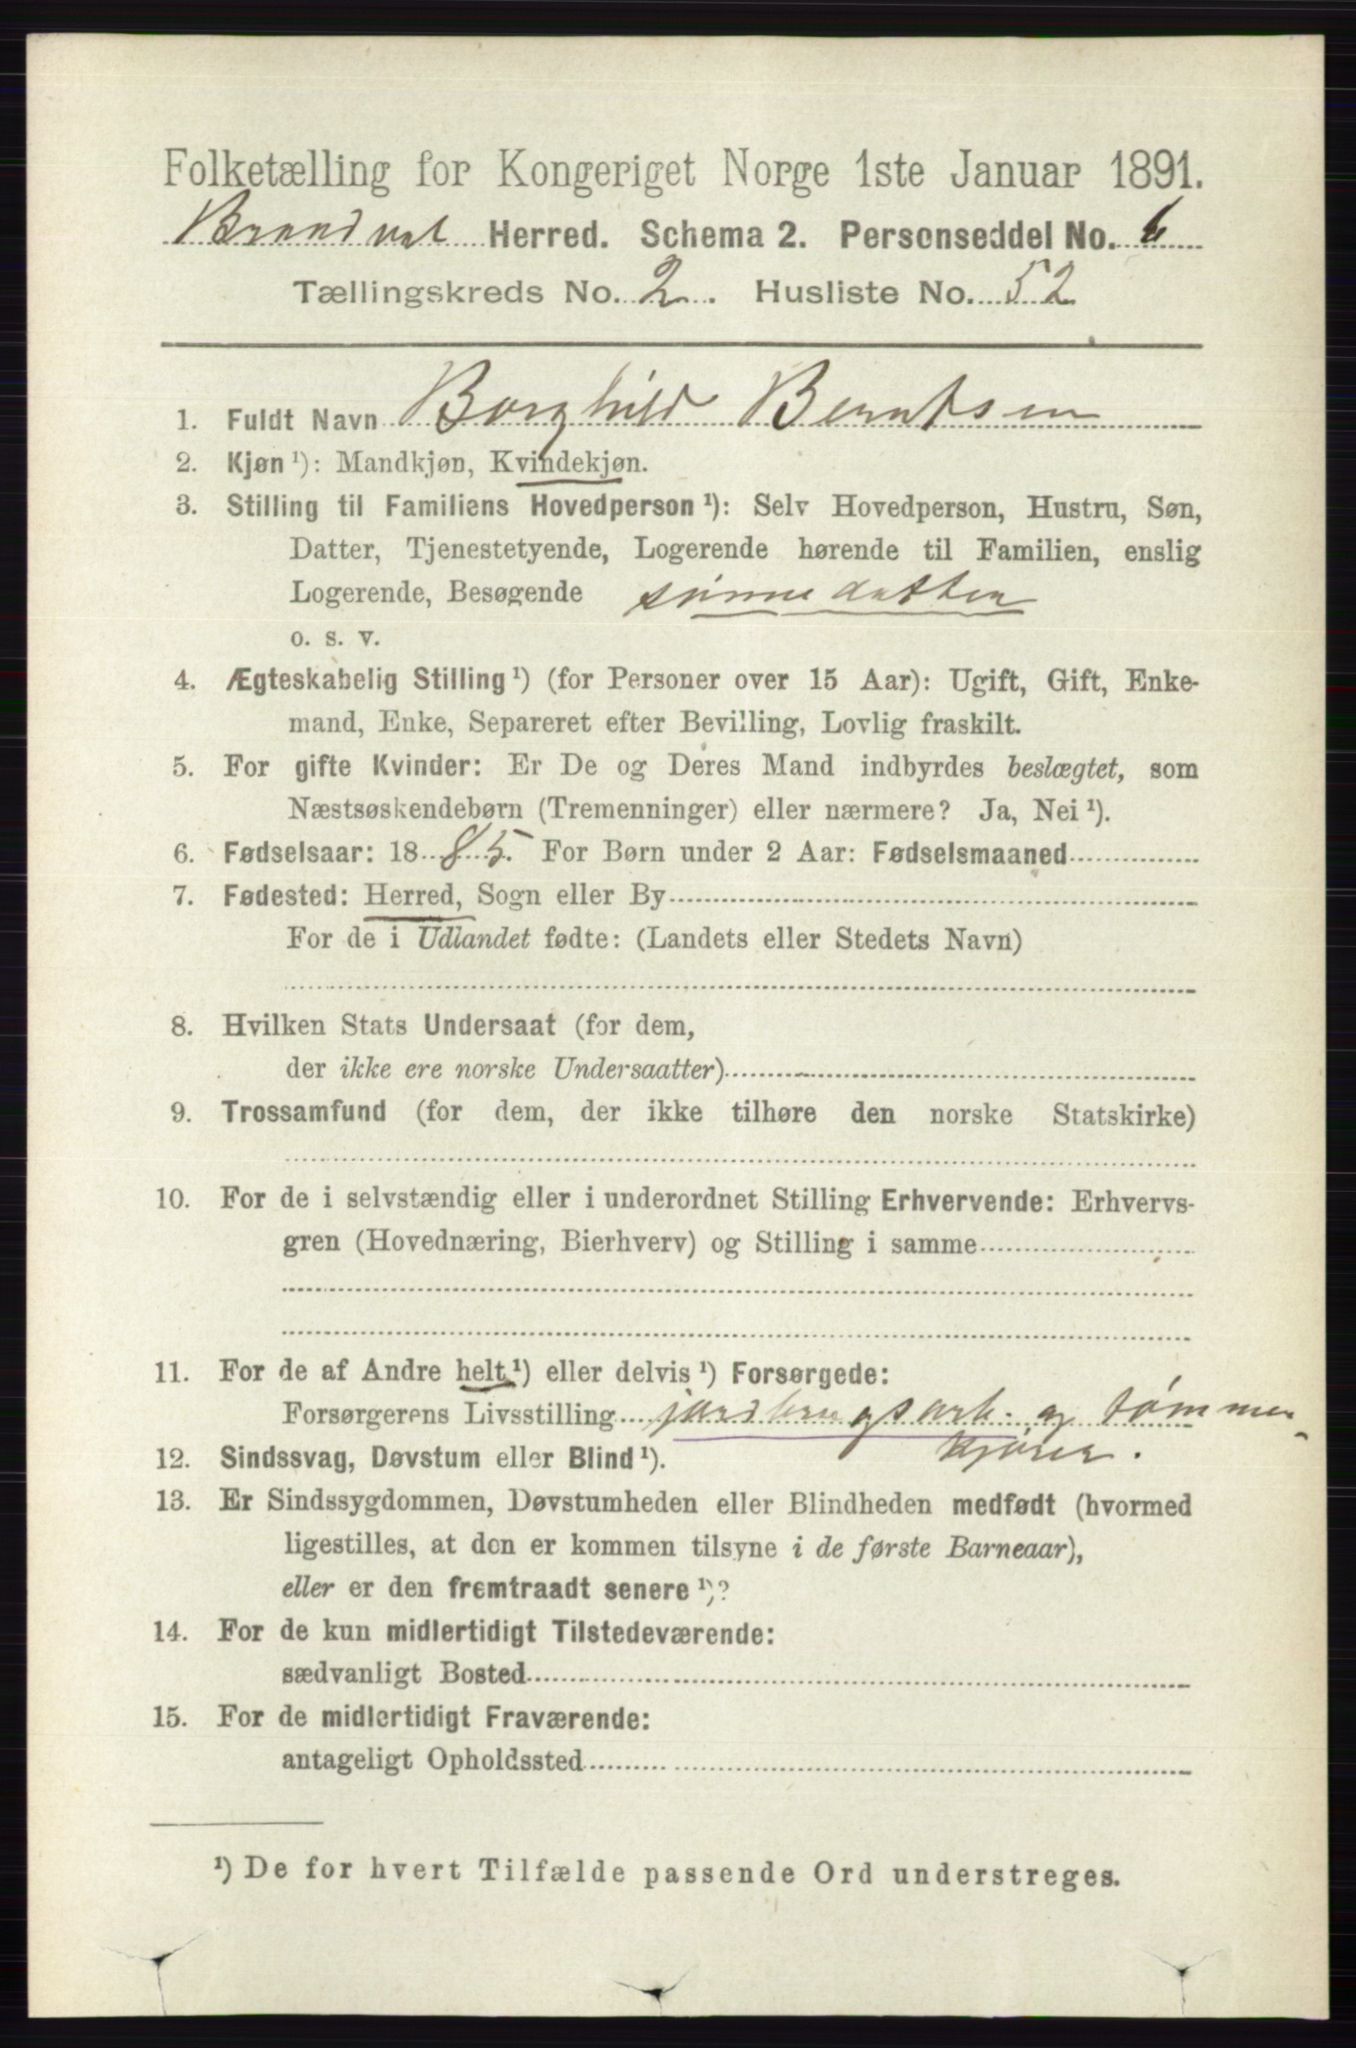 Folketælling for Kongeriget Norge 1ste Januar 1891.
Brandval Herred. Schema 2. Personseddel No. 6
Tællingskreds No. 2. Husliste No. 52
1. Fuldt Navn Borghild Berntsen
2. Kjøn ¹): Mandkjøn, Kvindekjøn.
3. Stilling til Familiens Hovedperson ¹): Selv Hovedperson, Hustru, Søn,
Datter, Tjenestetyende, Logerende hørende til Familien, enslig
Logerende, Besøgende sønnedatter
o. s. v.
4. Ægteskabelig Stilling ¹) (for Personer over 15 Aar): Ugift, Gift, Enke-
mand, Enke, Separeret efter Bevilling, Lovlig fraskilt.
5. For gifte Kvinder: Er De og Deres Mand indbyrdes beslægtet, som
Næstsøskendebørn (Tremenninger) eller nærmere? Ja, Nei ¹).
6. Fødselsaar: 1885. For Børn under 2 Aar: Fødselsmaaned
7. Fødested: Herred, Sogn eller By
For de i Udlandet fødte: (Landets eller Stedets Navn)
8. Hvilken Stats Undersaat (for dem,
der ikke ere norske Undersaatter)
9. Trossamfund (for dem, der ikke tilhøre den norske Statskirke)
10. For de i selvstændig eller i underordnet Stilling Erhvervende: Erhvervs-
gren (Hovednæring, Bierhverv) og Stilling i samme
11. For de af Andre helt ¹) eller delvis ¹) Forsørgede:
Forsørgerens Livsstilling jordbrugsarb. og tømmer-
kjører.
12. Sindssvag, Døvstum eller Blind ¹).
13. Er Sindssygdommen, Døvstumheden eller Blindheden medfødt (hvormed
ligestilles, at den er kommen tilsyne i de første Barneaar),
eller er den fremtraadt senere ¹)?
14. For de kun midlertidigt Tilstedeværende:
sædvanligt Bosted
15. For de midlertidigt Fraværende:
antageligt Opholdssted
¹) De for hvert Tilfælde passende Ord understreges.